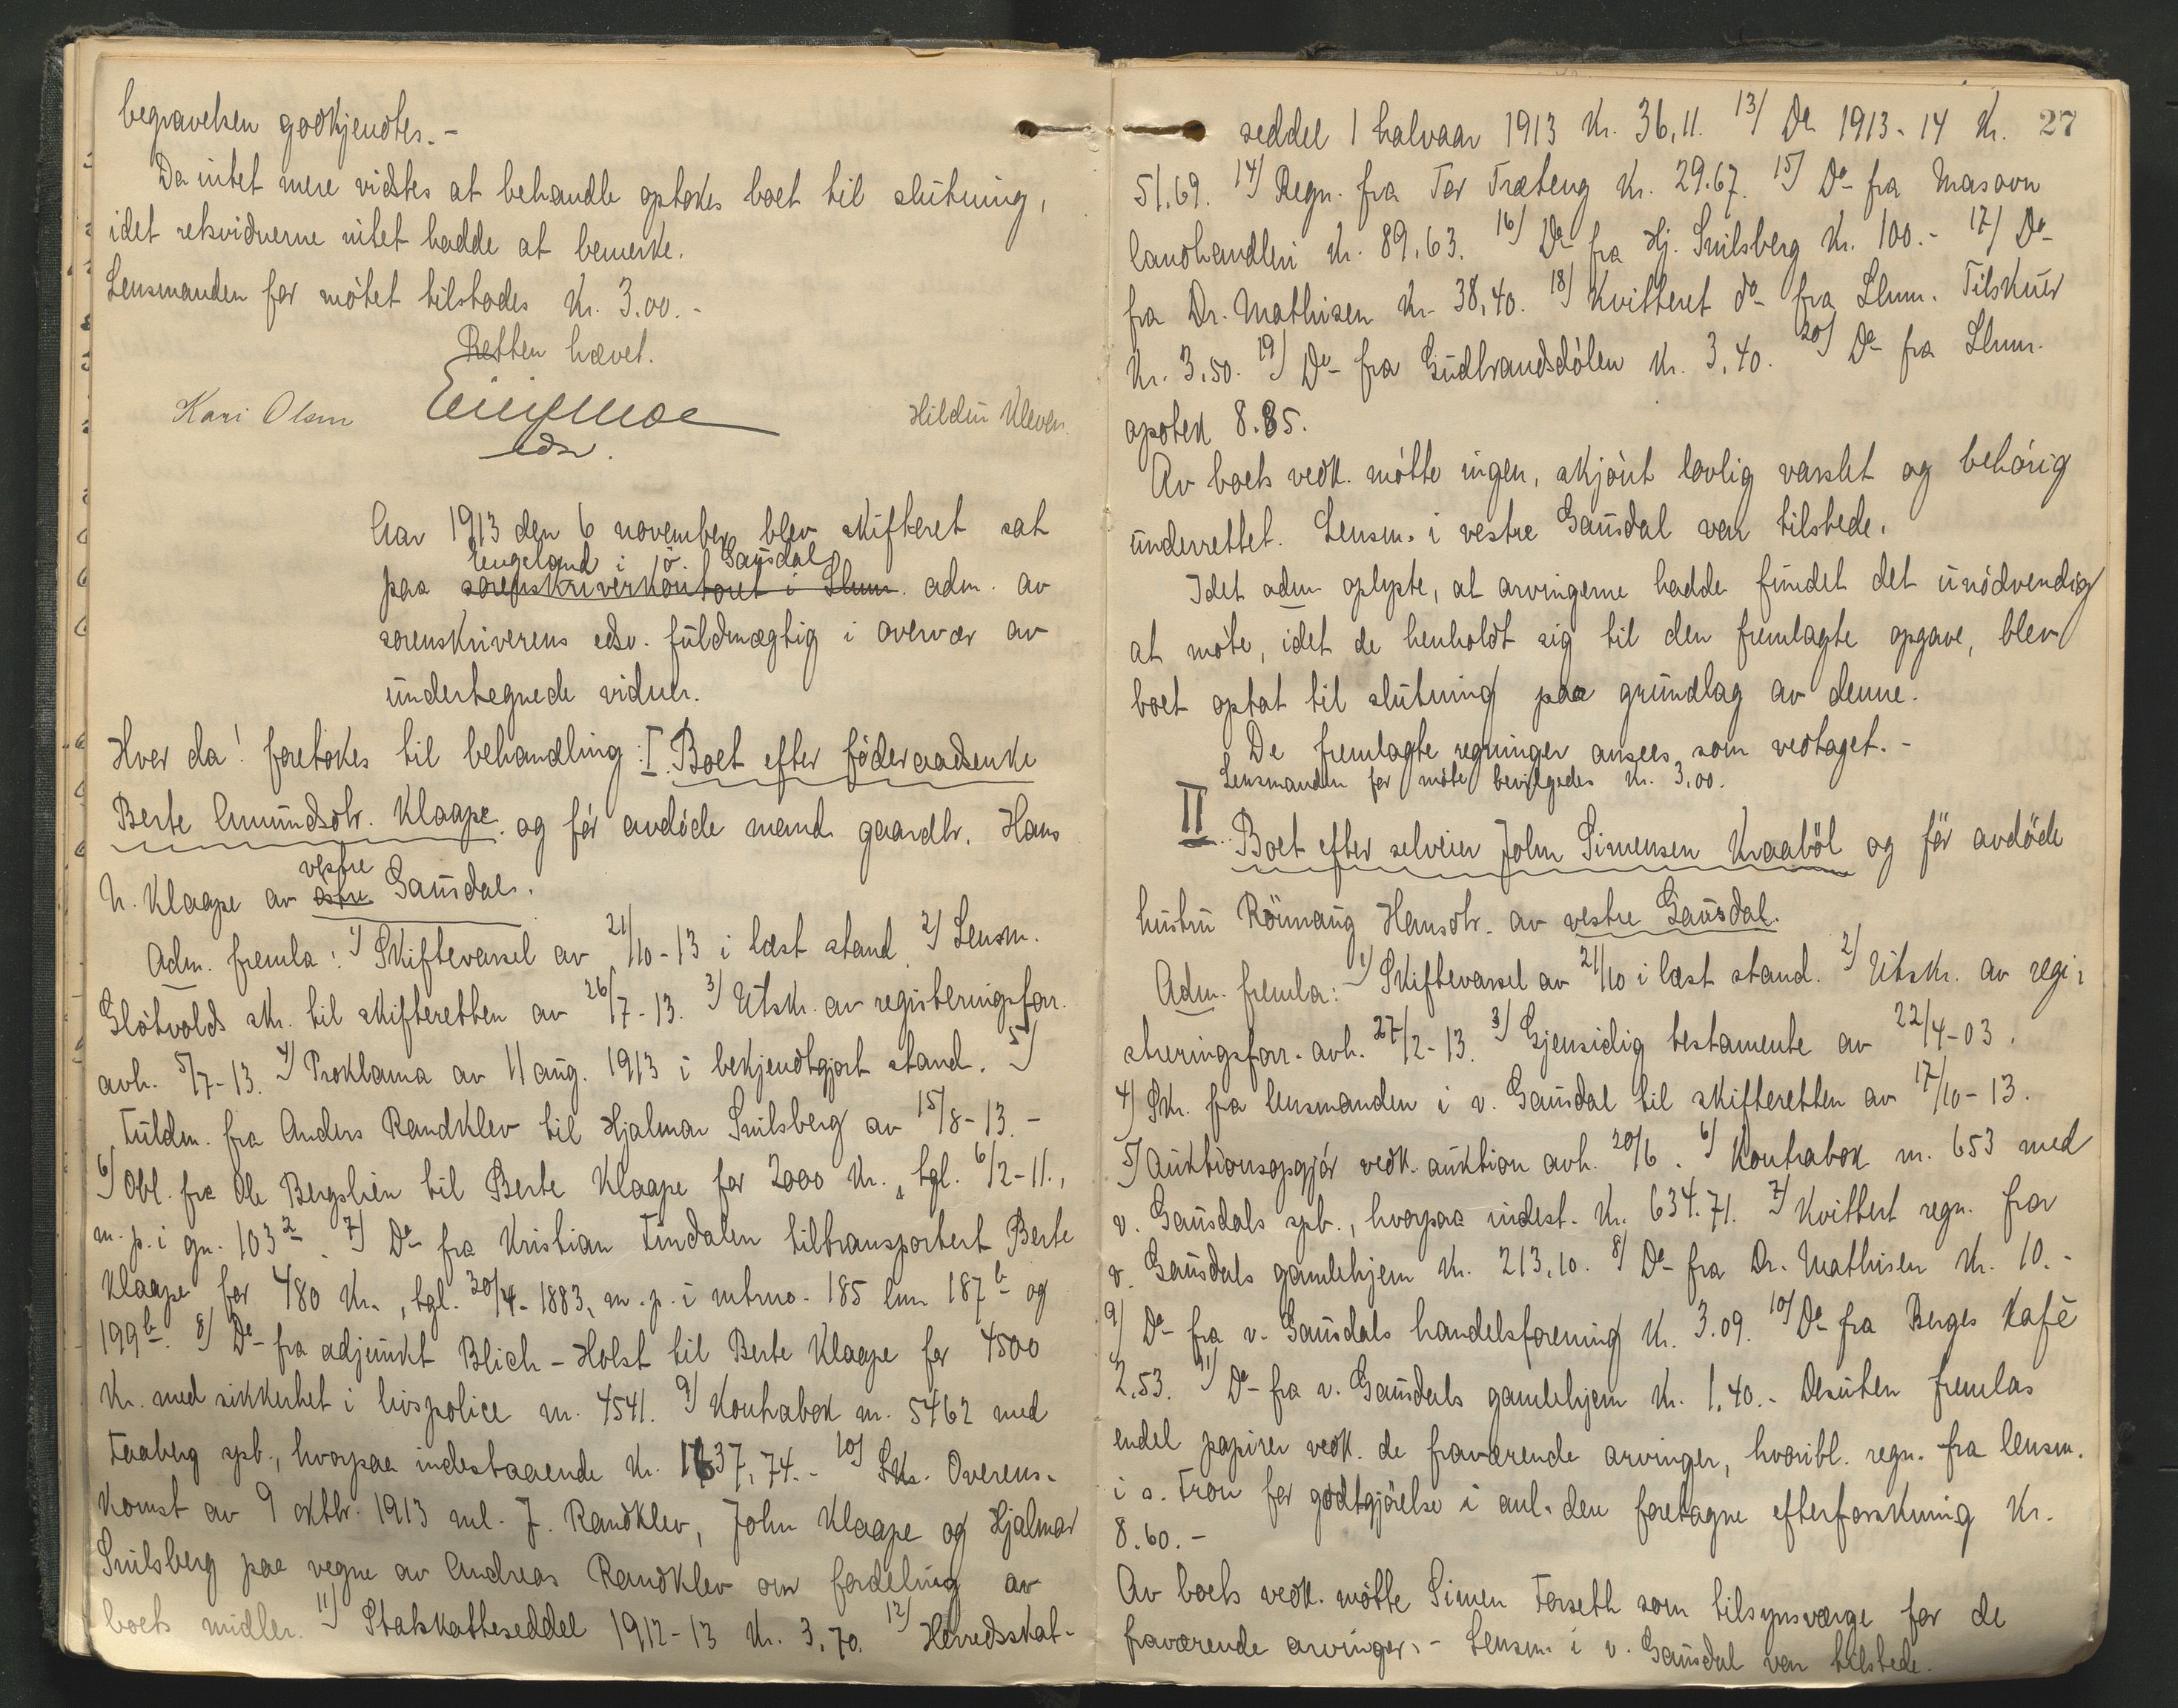 begravelsen godkjendtes.-
Da intet mere vidstes at behandle optokes boet til slutning,
idet rekvidnerne intet hadde at bemerke.
Lensmanden for møtet tilstodes Kr. 3.00.-
Retten hævet.
Kari Olsen
edsv.
Hildur Kleven.
Aar 1913 den 6 november blev skifteret sat
Engeland i ö. Gausdal
paa sorenskriverkontoret i Lhmr. adm. av
sorenskriverens edsv. fuldmægtig i overvær av
undertegnede vidner.
Hvor da! foretokes til behandling: I. Boet efter föderaadsenke
Berte Amundsdtr. Klaape og för avdöde mand gaardbr. Hans
vestre
H. Klaape av østre Gausdal.
Adm. fremla: 1) Skiftevarsel av 21/10-13 i læst stand. 2) Lensm.
Slotvolds skr. til skifteretten av 26/7-13. 3) Utskr. av registeringsforr.
avh. 5/7-13. 4) Proklama av 11 aug. 1913 i bekjendtgjort stand. 5)
Fuldm. fra Anders Randklev til Hjalmar Snilsberg av 15/8-13.-
6) Obl. fra Ole Bergslien til Berte Klaape for 2000 Kr., tgl. 6/2-11.,
m. p. i gn. 103 2. 7) Do- fra Kristian Findalen tiltransportert Berte
Klaape for 480 Kr., tgl. 20/4-1883, m. p. i mtrno. 185 lnr. 187 b og
199 b. 8) Do- fra adjunkt Blich-Holst til Berte Klaape for 4500
Kr. med sikkerhet i livspolice nr. 4541. 9) Kontrabok nr. 5462 med
Faaberg spb., hvorpaa indestaaende Kr. 1637,74.- 10) Skr. Overens-
komst av 9 oktbr. 1913 ml. J. Randklev, John Klaape og Hjalmar
Snilsberg paa vegne av Andreas Randklev om fordeling av
boets midler. 11) Statskatteseddel 1912-13 Kr. 3,70. 12) Herredsskat-
27
seddel 1 halvaar 1913 Kr. 36,11. 13) Do 1913-14 Kr.
51.69. 14) Regn. fra Tor Træteng Kr. 29.67. 15) Do- fra Masovn
landhandleri Kr. 89.63. 16) Do- fra Hj. Snilsberg Kr. 100.- 17) Do-
fra Dr. Mathisen Kr. 38,40. 18) Kvitteret do- fra Lhmr. Tilskuer
Kr. 3,50. 19) Do- fra Gudbrandsdölen Kr. 3,40. 20) Do- fra Lhmr.
apotek 8.85.
Av boets vedk. mötte ingen, skjönt lovlig varslet og behörig
underrettet. Lensm. i vestre Gausdal var tilstede.
Idet adm. oplyste, at arvingerne hadde fundet det unödvendig
at möte, idet de henholdt sig til den fremlagte opgave, blev
boet optat til slutning paa grundlag av denne.
De fremlagte regninger ansees som vedtaget.-
Lensmanden for möte bevilgedes Kr. 3,00.
II
Boet efter selveier John Simensen Kraaböl og för avdöde
hustru Rönnaug Hansdtr. av vestre Gausdal.
Adm. fremla: 1) Skiftevarsel av 21/10 i læst stand. 2) Utskr. av regi-
streringsforr. avh. 27/2-13. 3) Gjensidig testamente av 22/4-03.
4) Skr. fra lensmanden i v. Gausdal til skifteretten av 17/10-13.
5) Auktionsopgjör vedk. auktion avh. 20/6. 6) Kontrabok nr. 653 med
v. Gausdals spb., hvorpaa indest. Kr. 634.71. 7) Kvittert regn. fra
v. Gausdals gamlehjem Kr. 213,10. 8) Do- fra Dr. Mathisen Kr. 10.-
9) Do- fra v. Gausdals handelsforening Kr. 3.09. 10) Do- fra Berges Kafé
2,53. 11) Do- fra v. Gausdals gamlehjem Kr. 1,40.- Desuten fremlas
endel papirer vedk. de fraværende arvinger, hvoribl. regn. fra lensm.
i s. Fron for godtgjörelse i anl. den foretagne efterforskning Kr.
8.60.-
Av boets vedk. mötte Simen Forseth som tilsynsværge for de
fraværende arvinger.- Lensm. i v. Gausdal var tilstede.